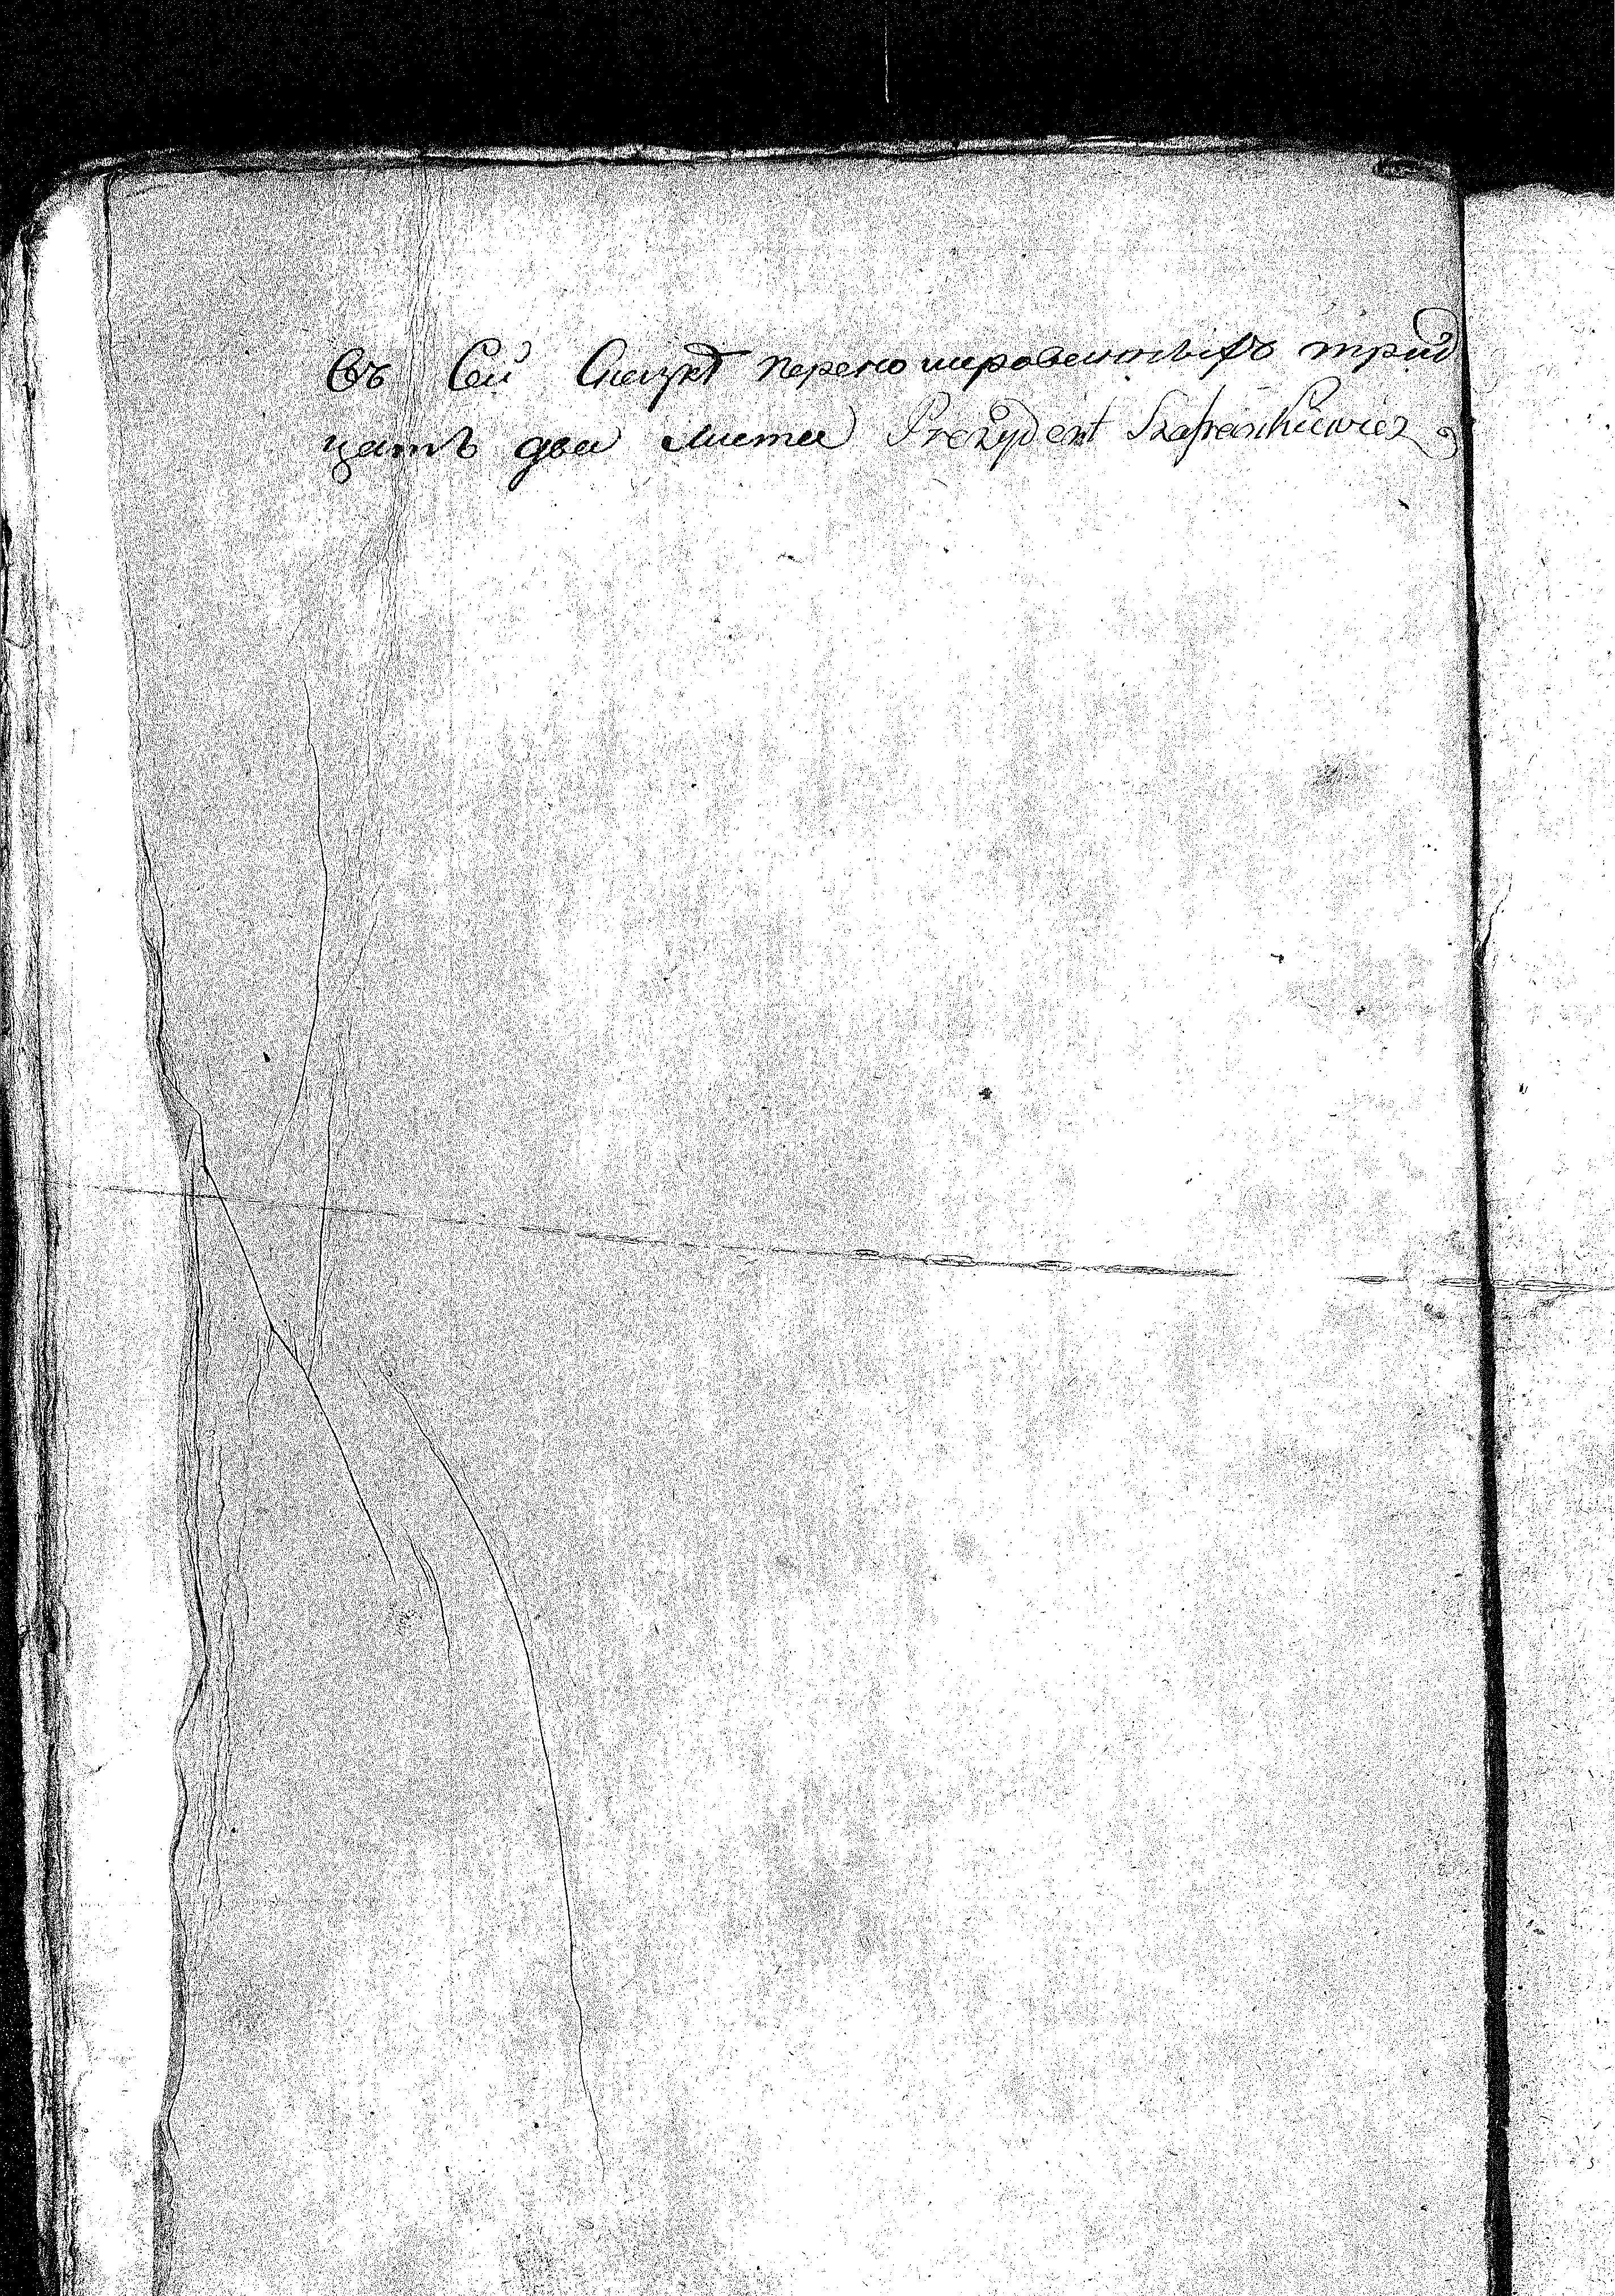 Въ Сей Сказкѣ перенумерованныхъ трид
цать два листа Prezydent Szafrankiewicz